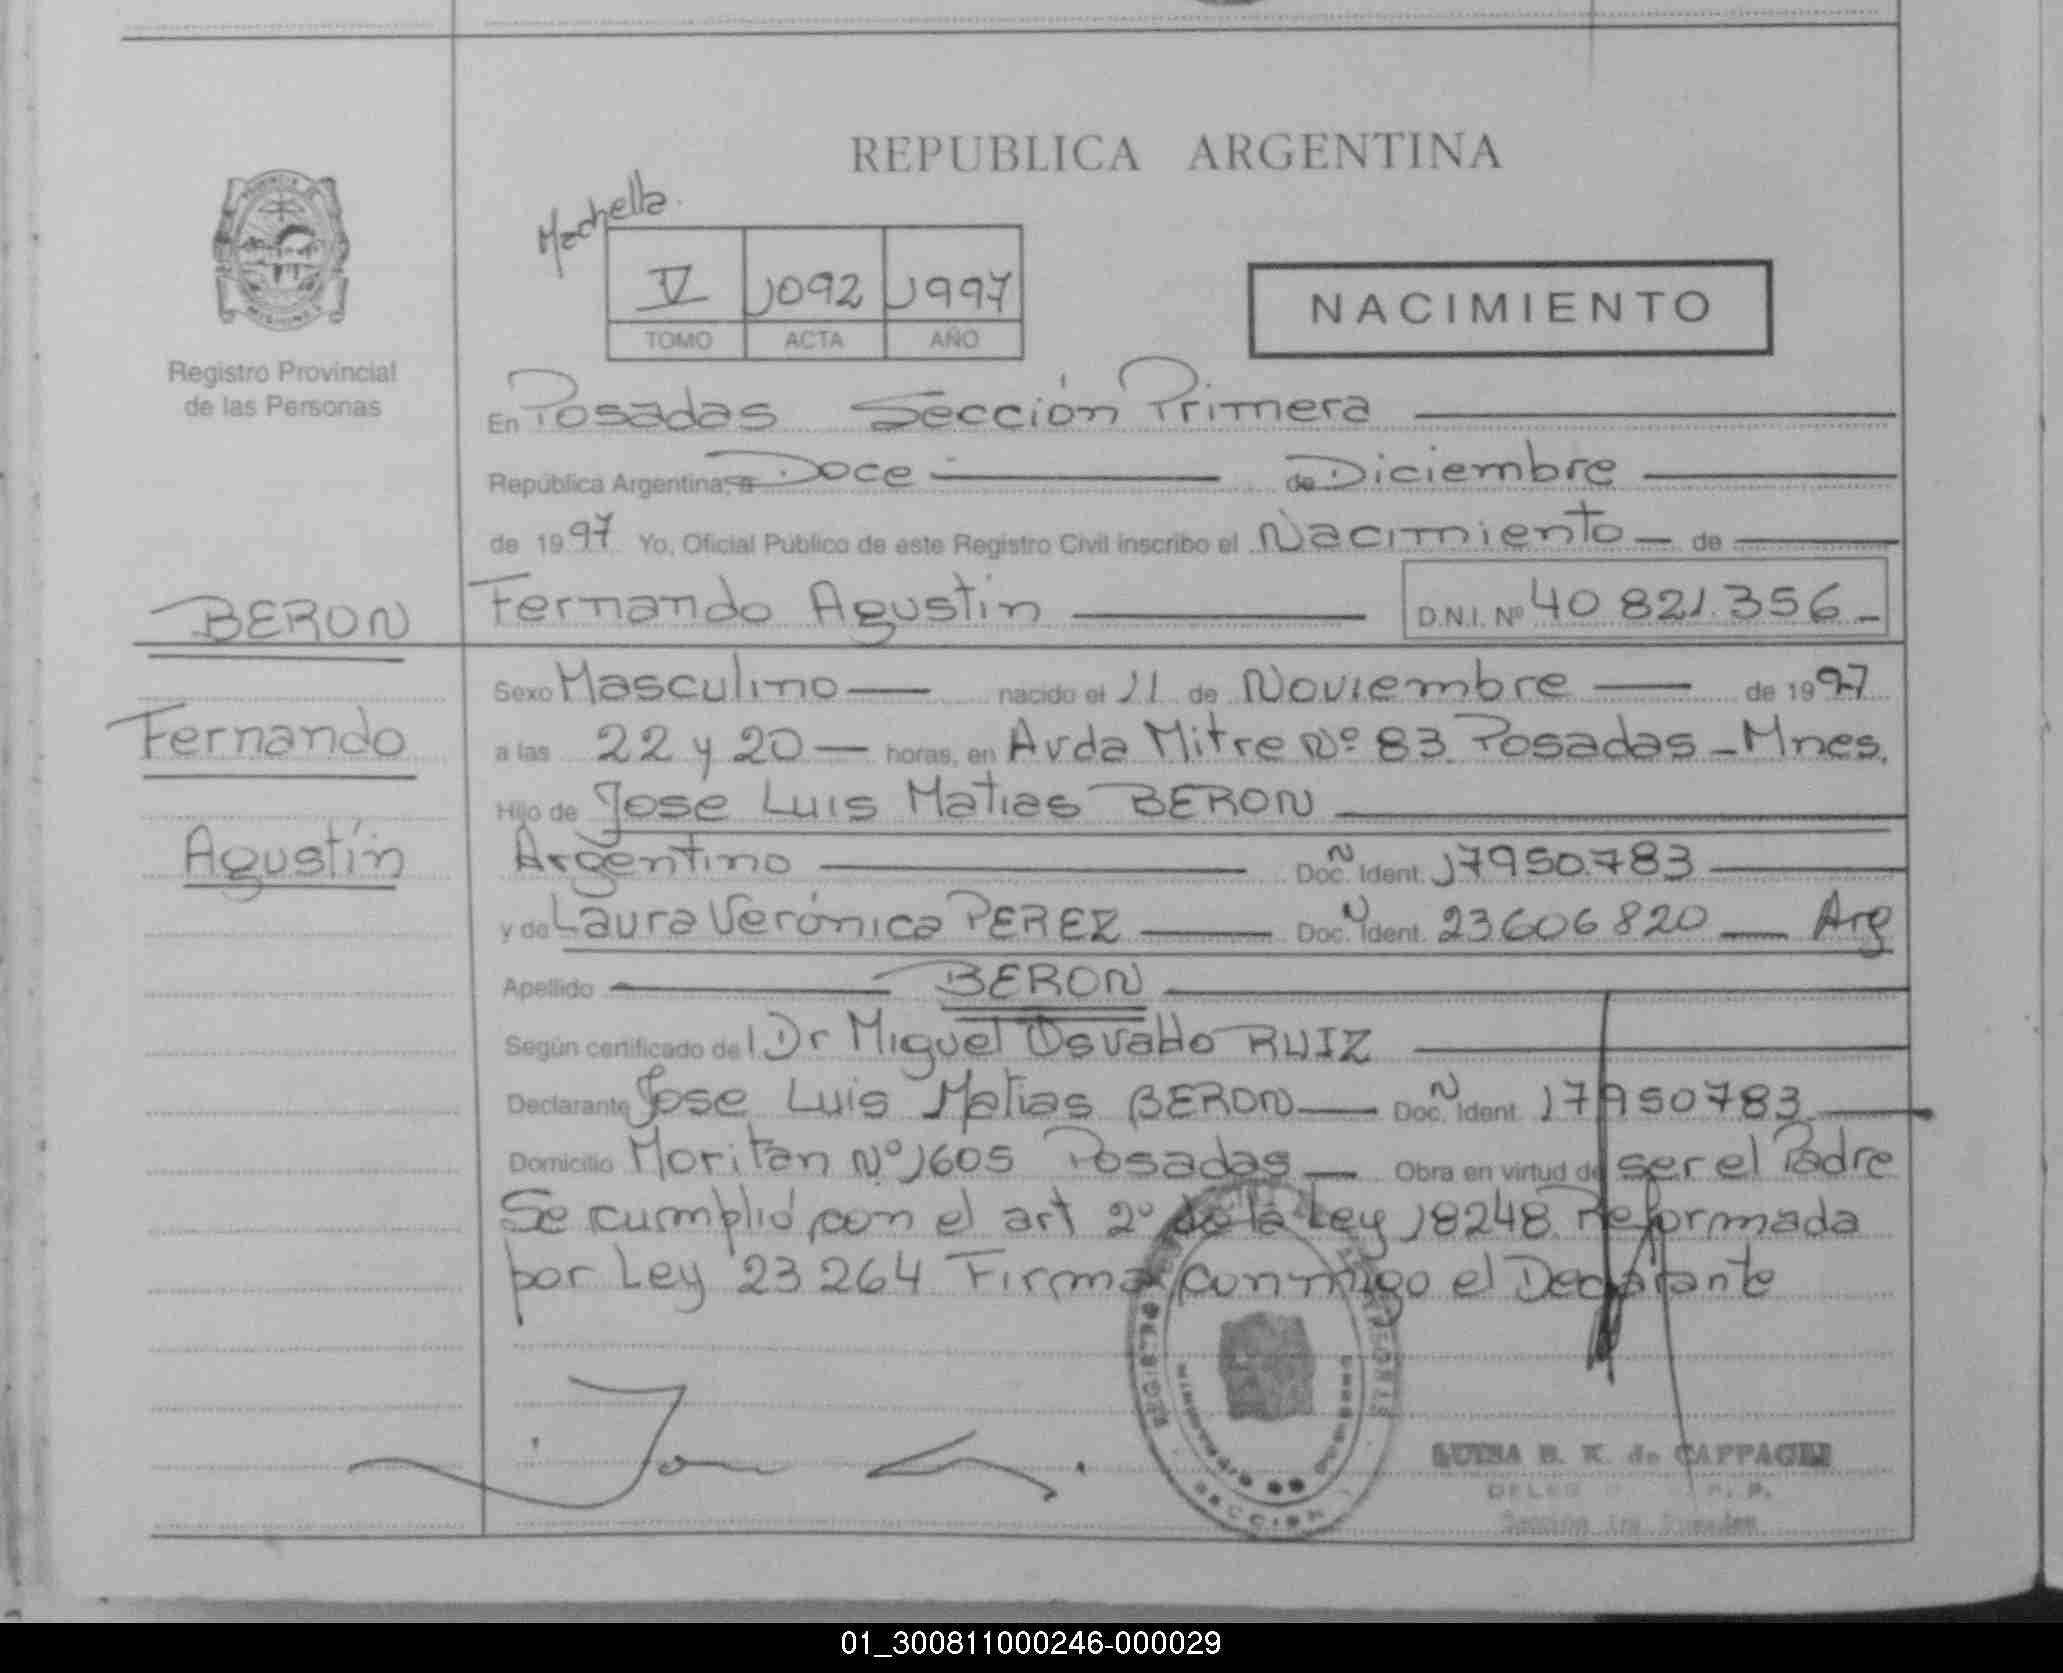 REPUBLICA ARGENTINA
Registro Provincial
de las Personas
V 1092 1997
TOMO ACTA AÑO
NACIMIENTO
En Posadas Sección Primera
República Argentina, a Doce de Diciembre
de 1997 Yo, Oficial Público de este Registro Civil inscribo el Nacimiento de
BERON
Fernando
Agustín
Fernando Agustin D.N.I. Nº 40 821.356
Sexo Masculino nacido el 11 de Noviembre de 1997
a las 22 y 20 horas, en Avda Mitre Nº 83 Posadas - Mnes.
Hijo de Jose Luis Matias BERON
Argentino Doc. N Ident. 17950.783
y de Laura Verónica PEREZ Doc. N Ident. 23606820 Arg
Apellido BERON
Según certificado del Dr Miguel Osvaldo RUIZ
Declarante Jose Luis Matias BERON Doc. N Ident. 17950783
Domicilio Moritan Nº 1605 Posadas Obra en virtud de ser el Padre
Se cumplió con el art 2º de la Ley 18248 Reformada
por Ley 23264 Firma conmigo el Declarante
LUISA B. K. de
01_300811000246-000029